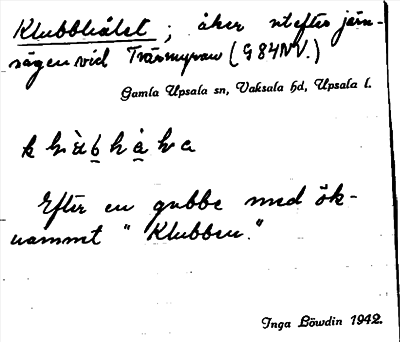 Klubbhålet ; åker utefter järn-
vägen vid Tvärmyran (G 84 NV.)
Gamla Upsala sn, Vaksala hd, Upsala l.
Efter en gubbe med ök-
nammet "Klubben."
Inga Löwdin 1942.